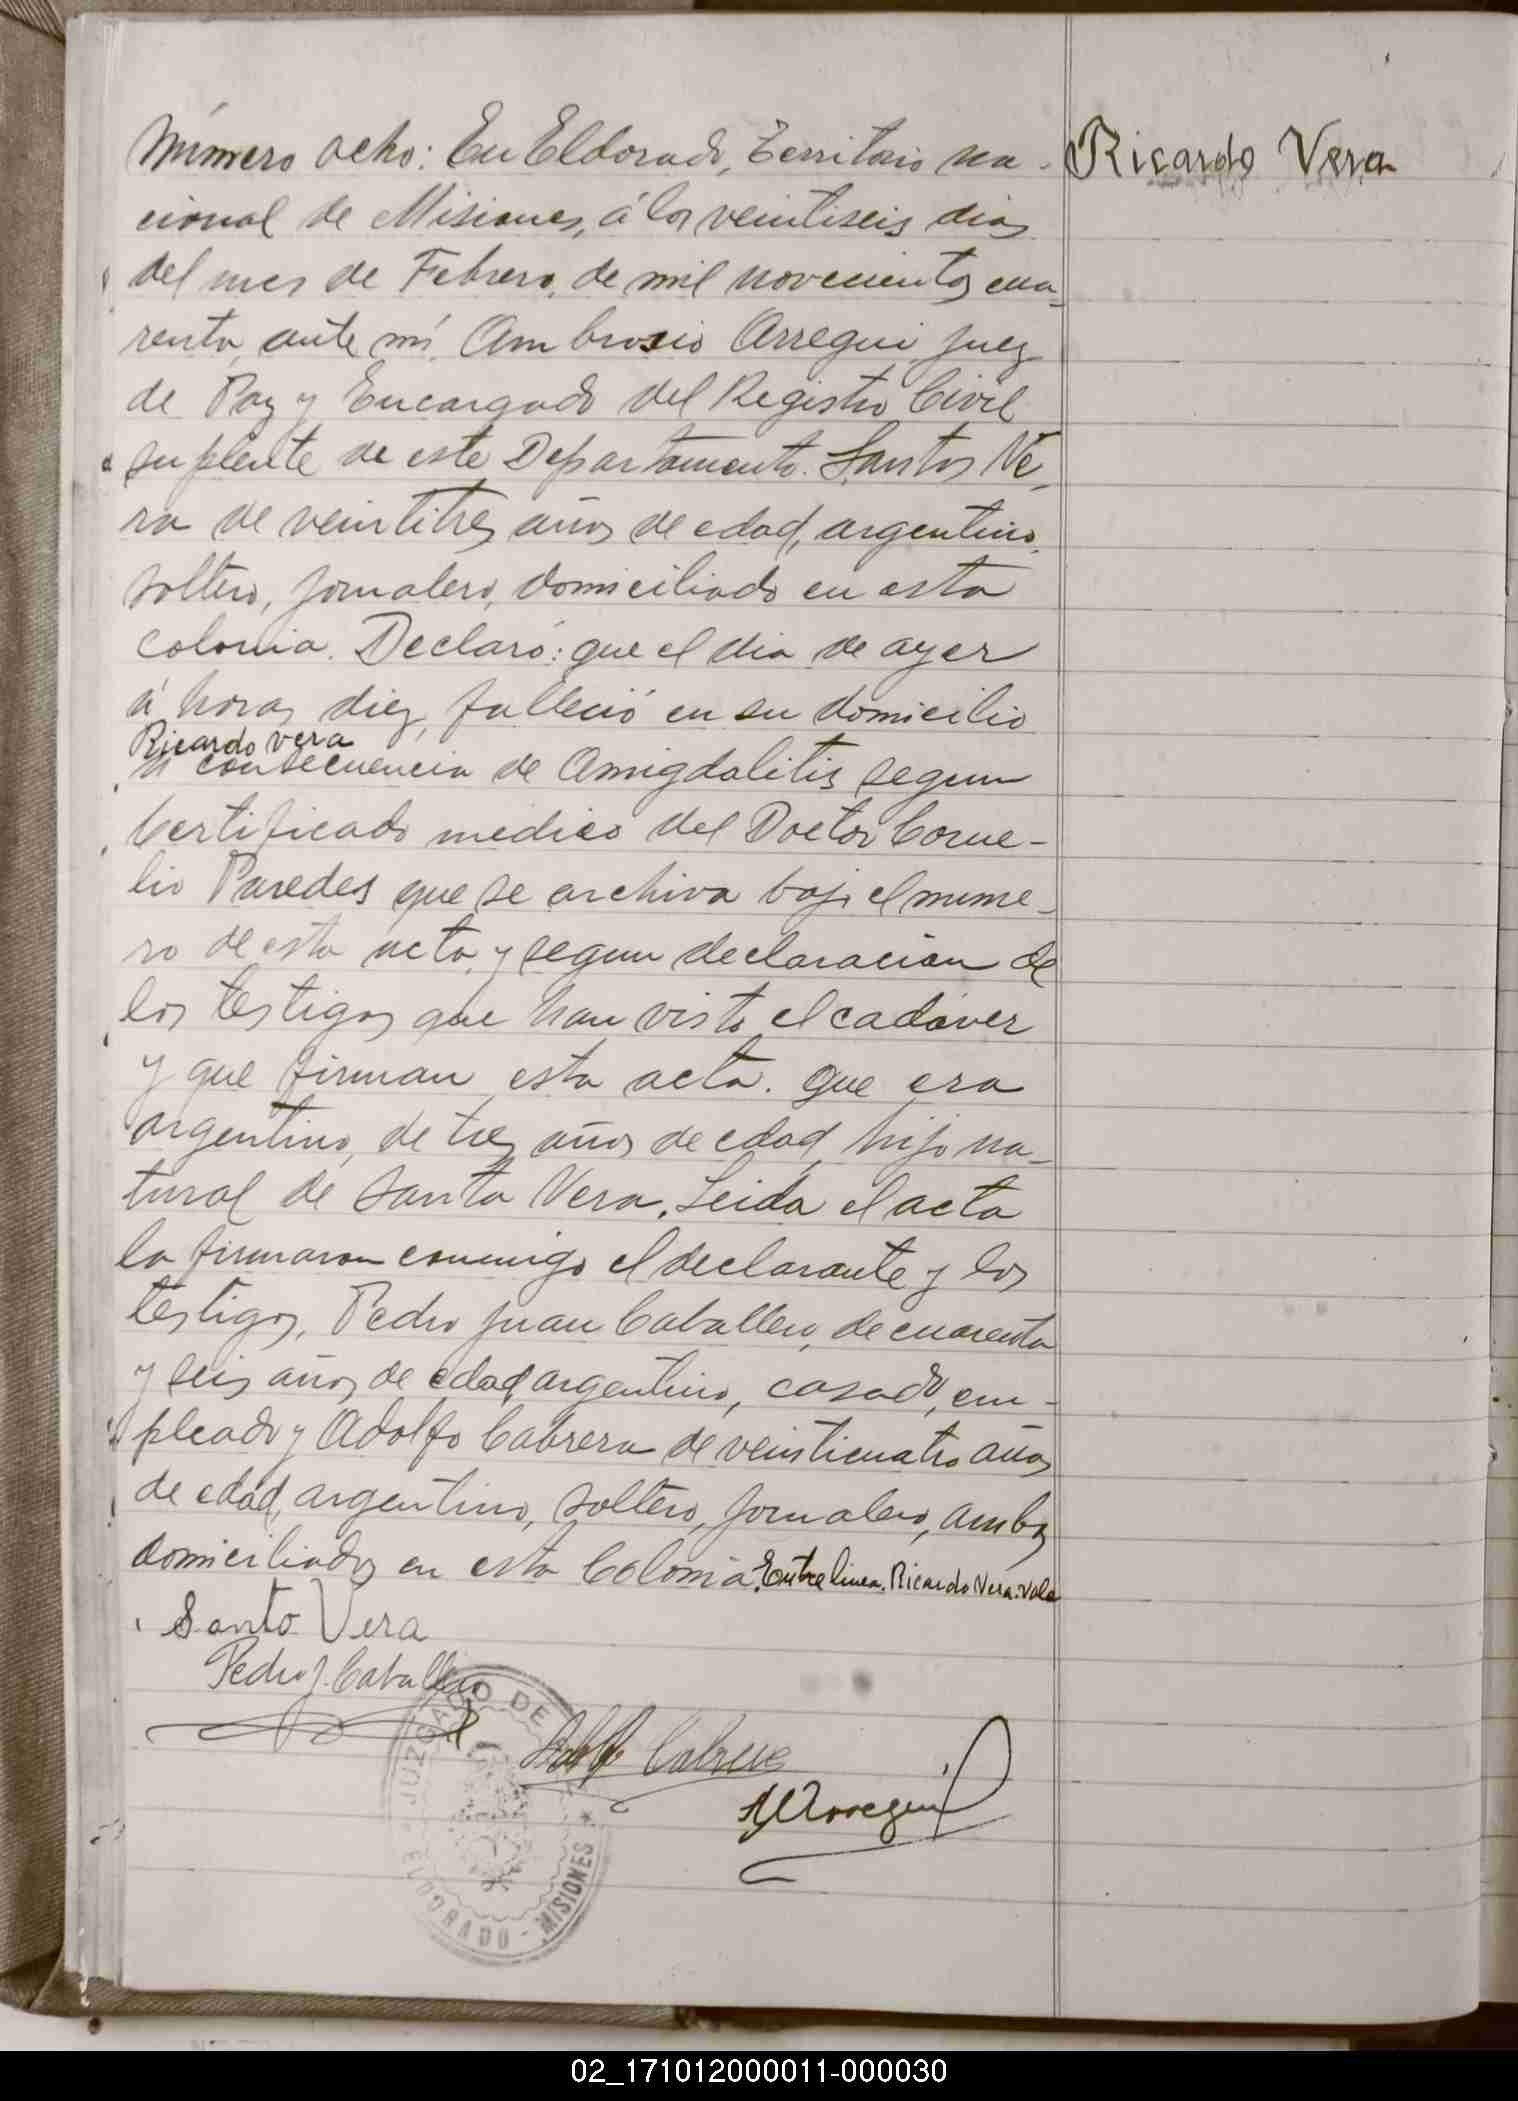 Número ocho: En Eldorado, Territorio na-
Ricardo Vera
cional de Misiones, á los veintiseis dias
del mes de Febrero, de mil novecientos cua-
renta, ante mi, Ambrosio Arregui, Juez
de Paz y Encargado del Registro Civil
suplente de este Departamento. Santos Ve-
ra de veintitres años de edad, argentino,
soltero, jornalero, domiciliado en esta
colonia. Declaró: que el dia de ayer
á horas diez, falleció en su domicilio
Ricardo Vera
a consecuencia de Amigdalitis segun
Certificado medico del Doctor Corne-
lio Paredes que se archiva bajo el nume-
ro de esta acta, y segun declaracion de
los testigos que han visto el cadáver
y que firman esta acta. que era
argentino, de tres años de edad, hijo na-
tural de Santa Vera. Leida el acta
la firmaron conmigo el declarante y los
testigos, Pedro Juan Caballero, de cuarenta
y seis años de edad, argentino, casado, em-
pleado y Adolfo Cabrera de veinticuatro años
de edad, argentino, soltero, jornalero, ambos
domiciliados en esta Colonia. Entre linea. Ricardo Vera. Vale
Santo Vera
Pedro J. Caballero
Adolfo Cabrera
Arregui
JUZGADO DE
ELDORADO - MISIONES
02_171012000011-000030